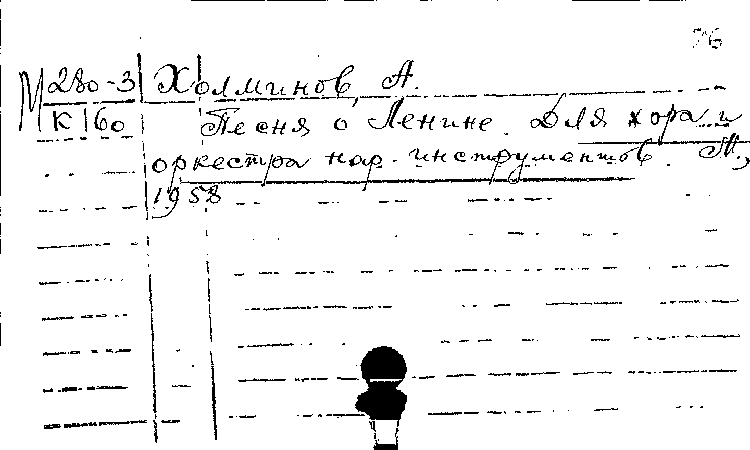 76
М 280-3 Холминов, А.
К 60 Песня о Ленине. Для хора и
оркестра нар. инструментов. М.,
1958